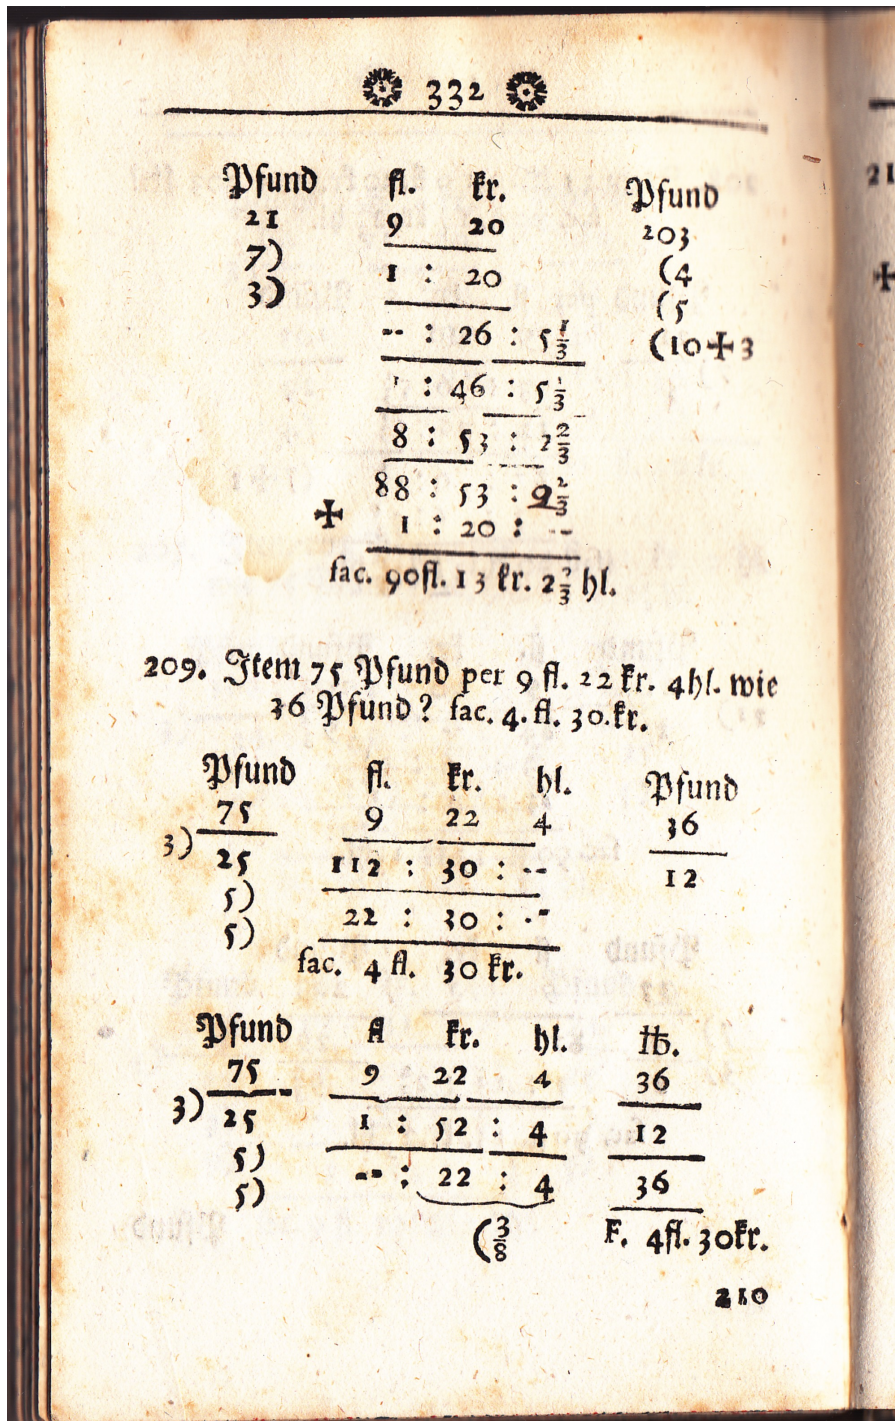 332
Pfund fl. kr. Pfund
21 9 20 203
7) 1 : 20 (4
3) -- : 26 : 5 1/3 (5
(10 + 3
1 : 46 : 5 1/3
8 : 53 : 2 2/3
88 : 53 : 2/3
+ 1 : 20 : --
fac. 90fl. 13 kr. 2 2/3 hl.
209. Item 75 Pfund per 9 fl. 22 kr. 4hl. wie
36 Pfund? fac. 4. fl. 30. kr.
Pfund fl. kr. hl. Pfund
75 9 22 4 36
3) 25 112 : 30 : -- 12
5) 22 : 30 : --
5)
fac. 4 fl. 30 kr.
Pfund fl kr. hl. ℔.
75 9 22 4 36
3) 25 1 : 52 : 4 12
5) -- : 22 : 4 36
5)
(3/8 F. 4fl. 30kr.
210
21
+